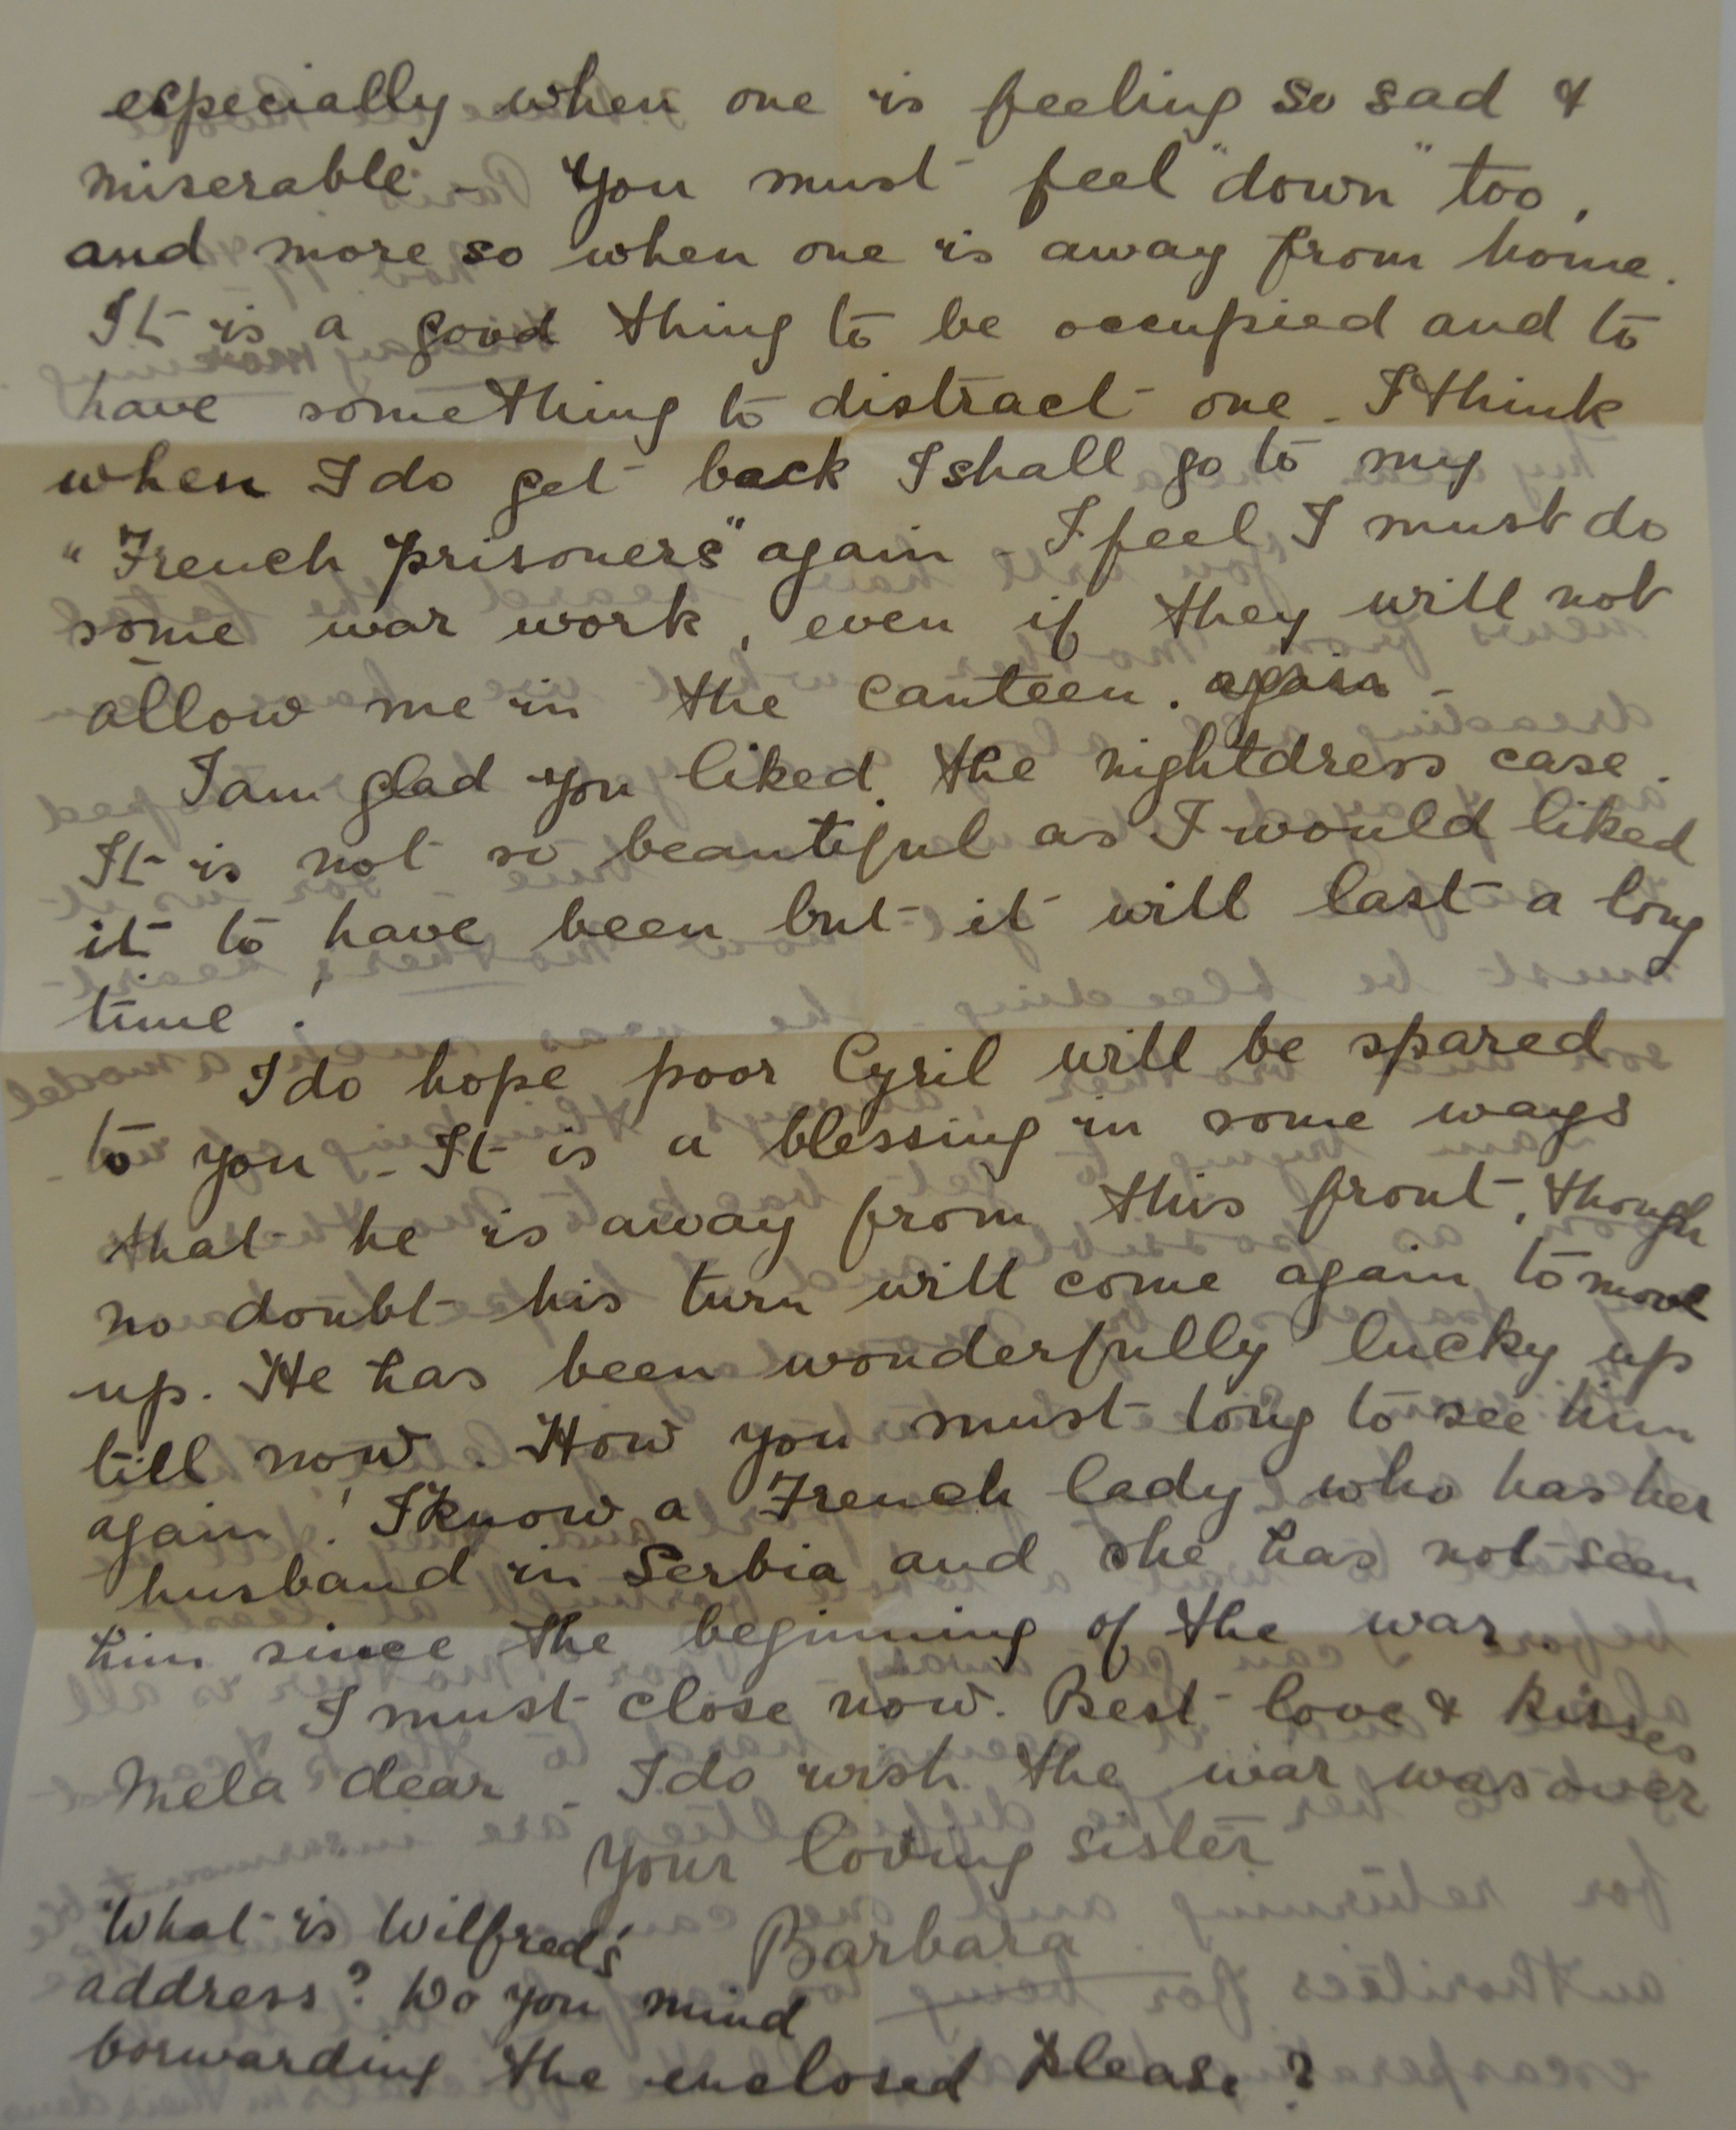 especially when one is feeling so sad &
miserable - You must feel "down" too,
and more so when one is away from home.
It is a good thing to be occupied and to
have something to distract one - I think
when I do get back I shall go to my
"French prisoners" again - I feel I must do
some war work, even if they will not
allow me in the canteen. again -
I am glad you liked the nightdress case.
It is not so beautiful as I would liked
it to have been but it will last a long
time!
I do hope poor Cyril will be spared
to you - It is a blessing in some ways
that he is away from this front, though
no doubt his turn will come again to move
up. He has been wonderfully lucky up
till now. How you must long to see him
again! I know a French lady who has her
husband in Serbia and she has not seen
him since the beginning of the war.
I must close now. Best love & kisses
Mela dear - I do wish the war was over
Your loving sister
Barbara
What is Wilfred's
address? Do you mind
forwarding the enclosed please?